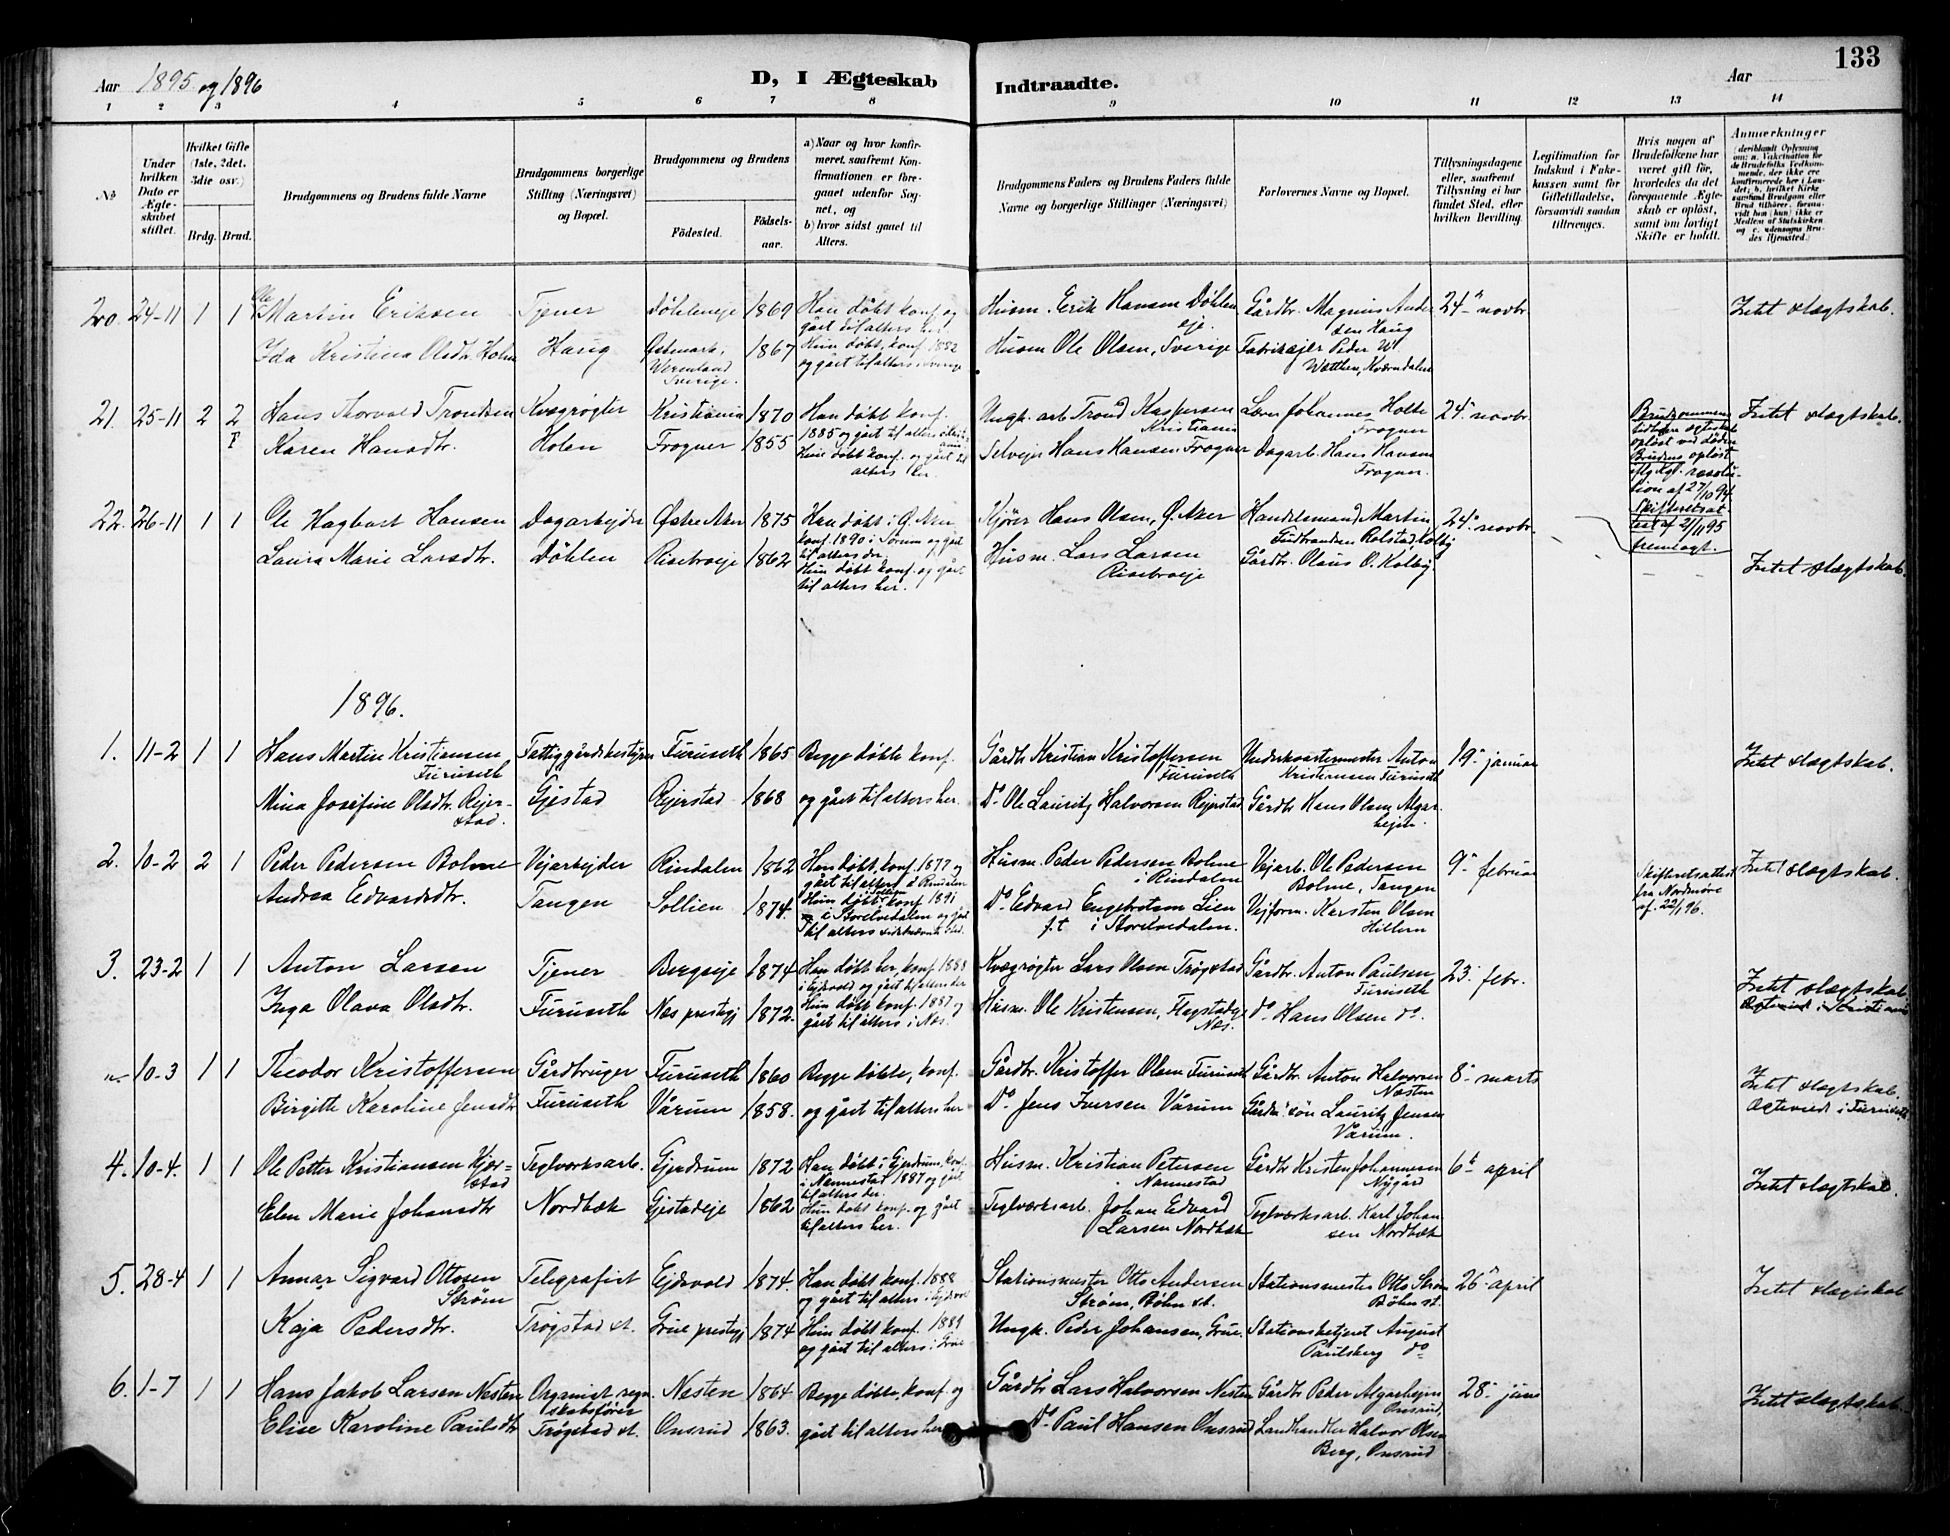 133
Aar 1895 og 1896
D, I Ægteskab Indtraadte.
Aar
1 2 3 4 5 6 7 8 9 10 11 12 13 14
No
Under hvilken Dato er Ægteskabet stiftet.
Hvilket Gifte (1ste, 2det, 3die osv.)
Brdg. Brud.
Brudgommens og Brudens fulde Navne
Brudgommens borgerlige Stilling (Næringsvei) og Bopæl.
Brudgommens og Brudens
Födested.
Födselsaar.
a) Naar og hvor konfirmeret, saafremt Konfirmationen er foregaaet udenfor Sognet, og
b) hvor sidst gaaet til Alters.
Brudgommens Faders og Brudens Faders fulde Navne og borgerlige Stillinger (Næringsvei)
Forlovernes Navne og Bopæl.
Tillysningsdagene eller, saafremt Tillysning ei har fundet Sted, efter hvilken Bevilling.
Legitimation for Indskud i Enkekassen samt for Giftetilladelse, forsaavidt saadan tiltrænges.
Hvis nogen af Brudefolkene har været gift för, hvorledes da det foregaaende Ægteskab er oplöst, samt om lovligt Skifte er holdt.
Anmærkninger
20. 24-11 1 1 Ole Martin Eriksen Tjener Døhleneje 1869 Han døbt konf. og gået til alters her. Husm. Erik Hansen Døhleneje Gårdbr. Magnus Andersen Haug 24de novbr. Intet slægtskab.
Ida Kristina Olsdtr. Holm Haug Østmark, Vermland Sverige. 1867 Hun døbt, konf. 1882 og gået til alters i Sverige Husm. Ole Olsen, Sverige Fabrikejer Peder W. Watthen, Kværndalen
21. 25-11 2 2 Hans Thorvald Trondsen Kvægrøgter Kristiania 1870 Han døbt konf. 1885 og gået til alters i Kristiania Ungk. arb. Trond Kaspersen Kristiania Lom Johannes Holte Frogner 24. novbr. Brudgommens tidligere ægteskab opløst ved døden Brudens opløst iflg. kgl. resolution af 27/10 94. Skifteretsattest af 2/11 95 fremlagt. Intet slægtskab.
F Karen Hansdtr. Holen Frogner 1855 Hun døbt konf. og gået til alters her. Selvejer Hans Hansen Frogner Dagarb. Hans Hansen Frogner.
22. 26-11 1 1 Ole Hagbart Hansen Dagarbejder Østre Aker 1875 Han døbt i Ø. Aker, konf. 1890 i Sørum og gået til alters der. Kjører Hans Olsen, Ø. Aker Handelsmand Martin Gudbrandsen Rolstad, Kolby 24. novbr. Intet slægtskab.
Laura Marie Larsdtr. Døhlen Risebroeje 1862 Hun døbt konf. og gået til alters her. Husm. Lars Larsen Risebroeje Gårdbr. Olaus O. Kolby.
1896.
1. 11-2 1 1 Hans Martin Kristiansen Furuseth Fattiggårdsbestyrer Furuseth 1865 Begge døbte konf. Gårdbr. Kristian Kristoffersen Furuseth Underkvartermester Anton Kristiansen Furuseth 19. januar Intet slægtskab.
Mina Josefine Olsdtr. Rejerstad. Gjestad Rejerstad 1868 og gået til alters her. Do. Ole Lauritz Halvorsen Rejerstad Gårdbr. Hans Olsen Algarhejm.
2. 10-2 2 1 Peder Pedersen Bolme Vejarbejder Rindalen 1862 Han døbt, konf. 1877 og gået til alters i Rindalen Husm. Peder Pedersen Bolme i Rindalen Vejarb. Ole Pedersen Bolme, Tangen 9. februar Skifteretsattest fra Nordmøre af 22/1 96. Intet slægtskab.
Andrea Edvardsdtr. Tangen Sollien 1874. Hun døbt i Sollien konf. 1891 i Storelvedalen og gået til alters sidstnævnte sted. Do. Edvard Engebretsen Lien f.t. i Storelvedalen. Vejform. Karsten Olsen Hillern
3. 23-2 1 1 Anton Larsen Tjener Bergseje 1874 Han døbt her, konf. 1888 i Ejdsvold og gået til alters der Kvægrøgter Lars Olsen Trøgstad Gårdbr. Anton Paulsen Furuseth 23. febr. Intet slægtskab.
Inga Olava Olsdtr. Furuseth Nes prestegj 1872. Hun døbt konf. 1887 og gået til alters i Nes. Husm. Ole Kristensen, Nes. do. Hans Olsen do.
10-3 1 1 Theodor Kristoffersen Gårdbruger Furuseth 1860 Begge døbte, konf. Gårdbr. Kristoffer Olsen Furuseth Gårdbr. Anton Halvorsen Nesten 8. marts Intet slægtskab. Ægteviede i Furuseth
Birgitte Karoline Jensdtr Furuseth Vårum 1858. og gået til alters her Do. Jens Iversen Vårum Gårdm. søn Lauritz Jensen Vårum.
4. 10-4. 1 1 Ole Petter Kristiansen Kjærstad Teglværksarb. Gjerdrum 1872 Han døbt i Gjerdrum, konf. i Nannestad 1887 og gået til alters der. Husm. Kristian Petersen Nannestad Gårdbr. Kristen Johannesen Nygård 6te april Intet slægtskab.
Elen Marie Johansdtr Nordbæk Gjestadeje 1862 Hun døbt konf. og gået til alters her. Teglværksarb. Johan Edvard Larsen Nordbæk Teglværksarb. Karl Johansen Nordbæk
5. 28-4 1 1 Annar Sigvard Ottosen Strøm Telegrafist Ejdsvold 1874. Han døbt konf. 1888 og gået til alters i Ejdsvold Stationsmester Otto Andersen Strøm, Bøhn st. Stationsmester Otto Strøm Bøhn st. 26. april Intet slægtskab
Kaja Pedersdtr. Trøgstad st. Grue prestegj 1874 Hun døbt konf. 1889 og gået til alters i Grue Ungk. Peder Johansen, Grue. Stationsbetjent August Paulsberg do.
6. 1-7 1 1 Hans Jakob Larsen Nesten Organist, regnskabsfører Nesten 1864 Begge døbte, konf. og Gårdbr Lars Halvorsen Nesten Gårdbr Peder Algarhejm Onsrud, 28. juni Intet slægtskab.
Elise Karoline Paulsdtr Trøgstad st. Onsrud 1863. gået til alters her Do. Paul Hansen Onsrud Landhandler Halvor Olsen Berg, Onsrud